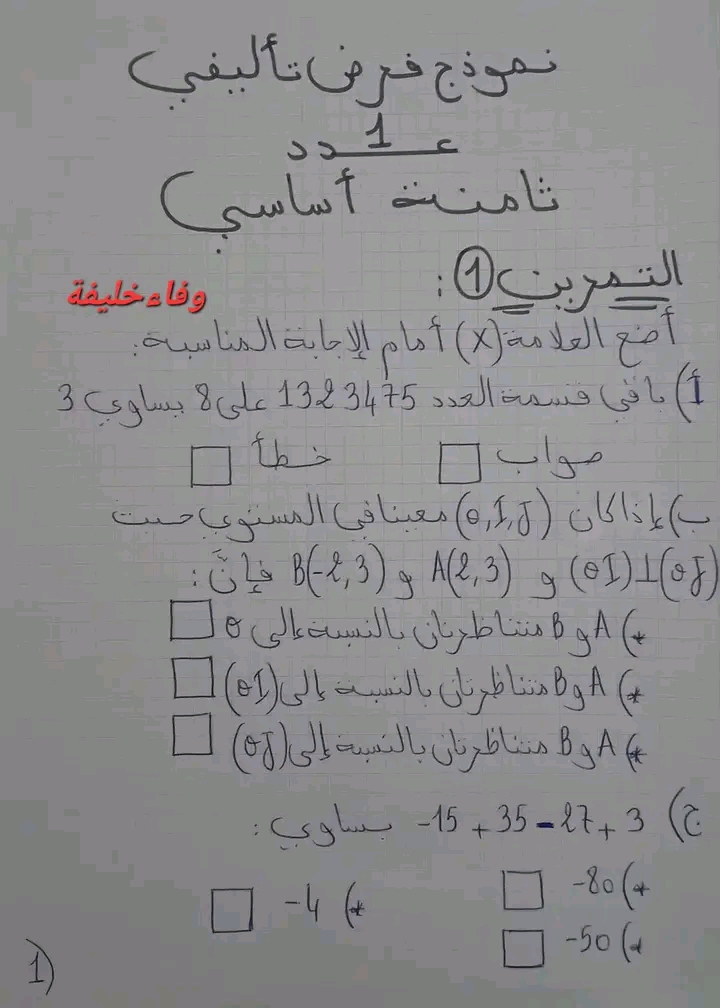 نموذج فرض تأليفي
عـــدد 1
ثامنة أساسي
التمرين 1 :
وفاء خليفة
أضع العلامة (X) أمام الإجابة المناسبة:
أ) باقي قسمة العدد 1323475 على 8 يساوي 3
صواب □ خطأ □
ب) إذا كان (O,I,J) معينا في المستوي حيث
(OI)⊥(OJ) و A(2,3) و B(-2,3) فإنَّ :
*) A و B متناظرتان بالنسبة إلى O □
*) A و B متناظرتان بالنسبة إلى (OI) □
*) A و B متناظرتان بالنسبة إلى (OJ) □
ج) -15 + 35 - 27 + 3 يساوي :
*) -80 □ *) -4 □
*) -50 □
1)